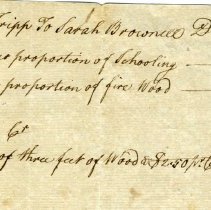 Tripp To Sarah Brownell D
proportion of Schooling
proportion of fire Wood
Ct
of three feet of Wood @ $2.50 pr C